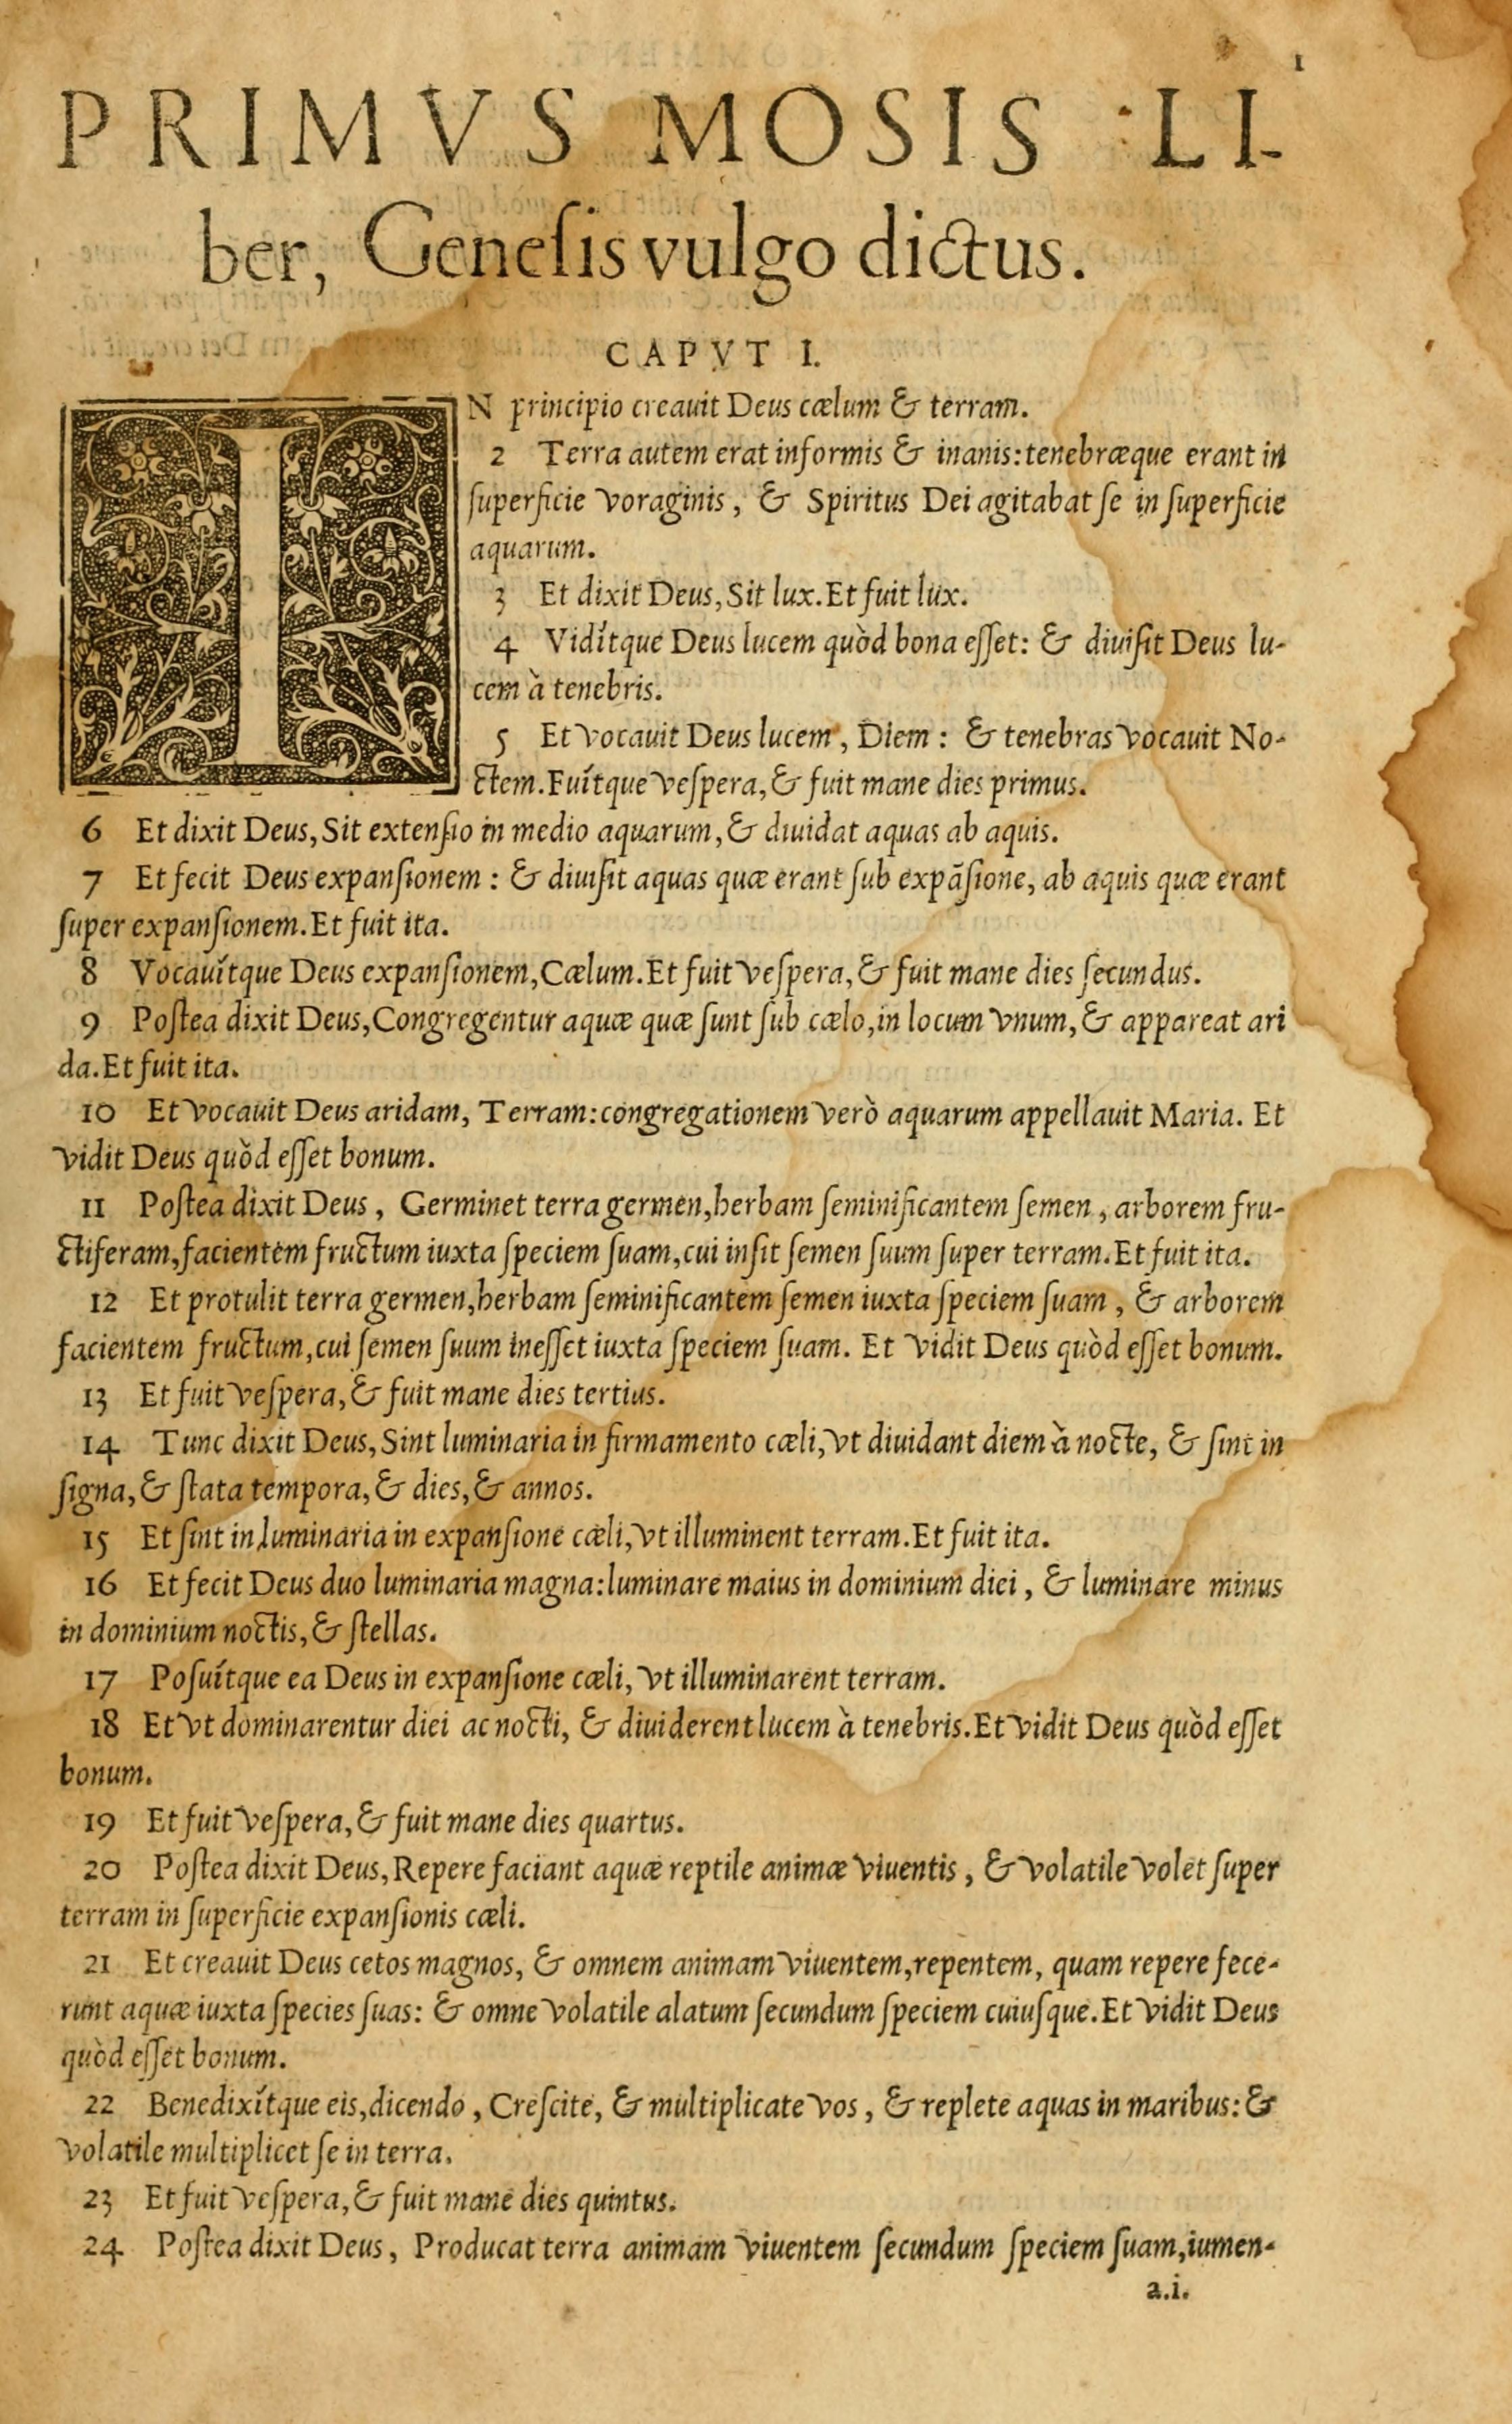 1
PRIMVS MOSIS LI-
ber, Geneſis vulgo dictus.
CAPVT I.
IN principio creauit Deus cælum & terram.
2 Terra autem erat informis & inanis: tenebræque erant in
ſuperficie voraginis, & Spiritus Dei agitabat ſe in ſuperficie
aquarum.
3 Et dixit Deus, Sit lux. Et fuit lux.
4 Vidítque Deus lucem quòd bona eſſet: & diuiſit Deus lu-
cem à tenebris.
5 Et vocauit Deus lucem, Diem: & tenebras vocauit No-
ctem. Fuítque veſpera, & fuit mane dies primus.
6 Et dixit Deus, Sit extenſio in medio aquarum, & diuidat aquas ab aquis.
7 Et fecit Deus expanſionem: & diuiſit aquas quæ erant ſub expãſione, ab aquis quæ erant
ſuper expanſionem. Et fuit ita.
8 Vocauítque Deus expanſionem, Cælum. Et fuit veſpera, & fuit mane dies ſecundus.
9 Poſtea dixit Deus, Congregentur aquæ quæ ſunt ſub cælo, in locum vnum, & appareat ari
da. Et fuit ita.
10 Et vocauit Deus aridam, Terram: congregationem verò aquarum appellauit Maria. Et
vidit Deus quòd eſſet bonum.
11 Poſtea dixit Deus, Germinet terra germen, herbam ſeminificantem ſemen, arborem fru-
ctiferam, facientem fructum iuxta ſpeciem ſuam, cui inſit ſemen ſuum ſuper terram. Et fuit ita.
12 Et protulit terra germen, herbam ſeminificantem ſemen iuxta ſpeciem ſuam, & arborem
facientem fructum, cui ſemen ſuum ineſſet iuxta ſpeciem ſuam. Et vidit Deus quòd eſſet bonum.
13 Et fuit veſpera, & fuit mane dies tertius.
14 Tunc dixit Deus, Sint luminaria in firmamento cæli, vt diuidant diem à nocte, & ſint in
ſigna, & ſtata tempora, & dies, & annos.
15 Et ſint in luminaria in expanſione cæli, vt illuminent terram. Et fuit ita.
16 Et fecit Deus duo luminaria magna: luminare maius in dominium diei, & luminare minus
in dominium noctis, & ſtellas.
17 Poſuítque ea Deus in expanſione cæli, vt illuminarent terram.
18 Et vt dominarentur diei ac nocti, & diuiderent lucem à tenebris. Et vidit Deus quòd eſſet
bonum.
19 Et fuit veſpera, & fuit mane dies quartus.
20 Poſtea dixit Deus, Repere faciant aquæ reptile animæ viuentis, & volatile volet ſuper
terram in ſuperficie expanſionis cæli.
21 Et creauit Deus cetos magnos, & omnem animam viuentem, repentem, quam repere fece-
runt aquæ iuxta ſpecies ſuas: & omne volatile alatum ſecundum ſpeciem cuiuſque. Et vidit Deus
quòd eſſet bonum.
22 Benedixítque eis, dicendo, Creſcite, & multiplicate vos, & replete aquas in maribus: &
volatile multiplicet ſe in terra.
23 Et fuit veſpera, & fuit mane dies quintus.
24 Poſtea dixit Deus, Producat terra animam viuentem ſecundum ſpeciem ſuam, iumen-
a.i.